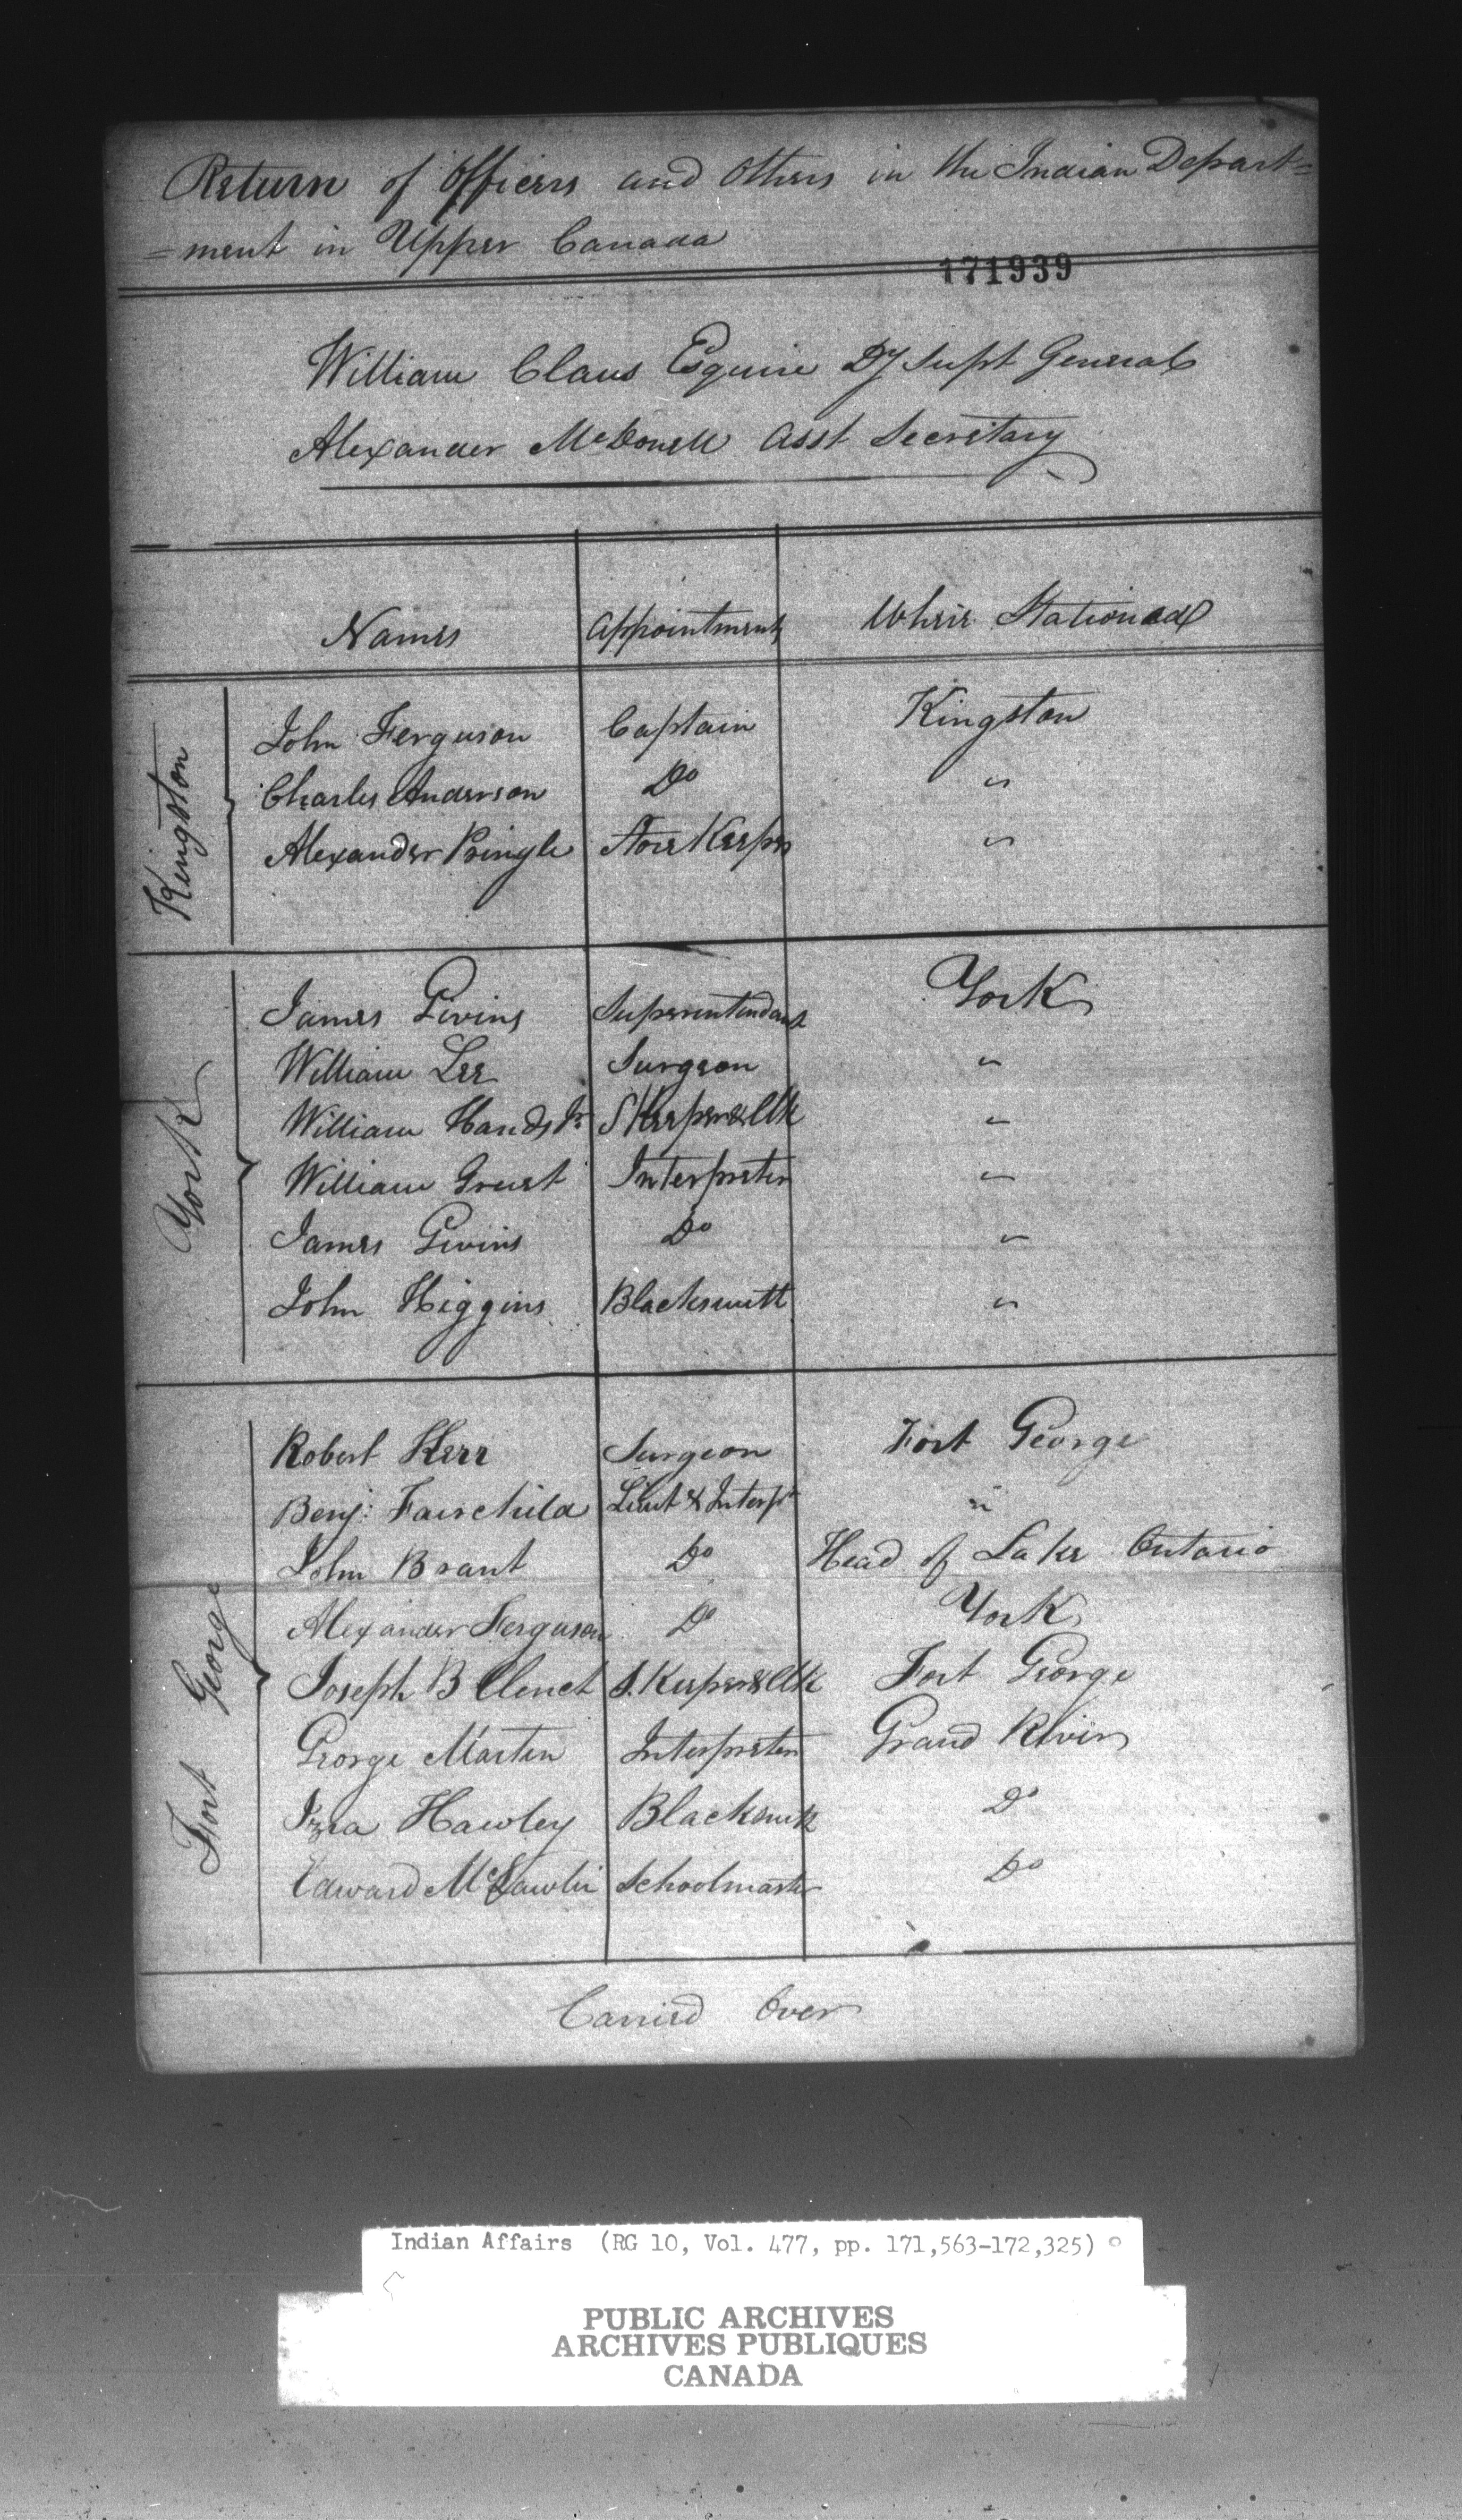 Return of Officers and Others in the Indian Depart=
=ment in Upper Canada
171939
William Claus Esquire Dy Supt General
Alexander McDonell Asst Secretary
Names Appointments Where Stationed
Kingston
John Ferguson Captain Kingston
Charles Anderson Do "
Alexander Pringle Store Keeper "
York
James Givins Superintendant York
William Lee Surgeon "
William Hands Jr S Keeper & Clk "
William Gruet Interpreter "
James Givins Do "
John Higgins Blacksmith "
Fort George
Robert Kerr Surgeon Fort George
Benj: Fairchild Lieut & Interpr "
John Brant Do Head of Lake Ontario
Alexander Ferguson Do York
Joseph B Clench S. Keeper & Clk Fort George
George Martin Interpreter Grand River
Izra Hawley Blacksmith Do
Edward Schoolmaster Do
Carried Over
Indian Affairs (RG 10, Vol. 477, pp. 171,563-172,325)
PUBLIC ARCHIVES
ARCHIVES PUBLIQUES
CANADA